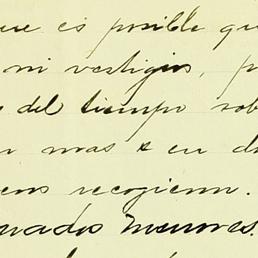 es posible qu
ni vestigios, p
del tiempo sob
mas en d
recogieron.
menores.